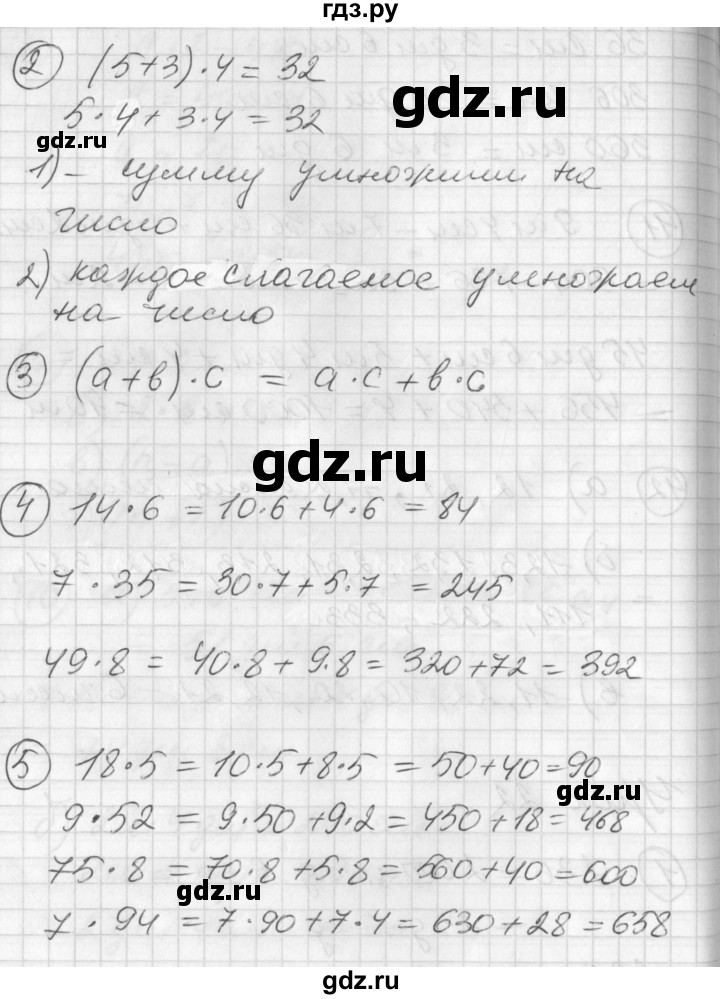 гдз.ру
② (5+3)·4 = 32
gdz.ru
5·4+3·4 = 32
gdz.ru
1) – сумму умножили на
число
2) каждое слагаемое умножаем
на число
③ (а+в)·с = а·с+в·с
gdz.ru
④ 14·6 = 10·6+4·6 = 84
7·35 = 30·7+5·7 = 245
49·8 = 40·8+9·8 = 320+72 = 392
⑤ 18·5 = 10·5+8·5 = 50+40=90
gdz.ru
9·52 = 9·50+9·2 = 450+18=468
75·8 = 70·8+5·8 = 560+40=600
gdz.ru
7·94 = 7·90+7·4 = 630+28=658
gdz.ru